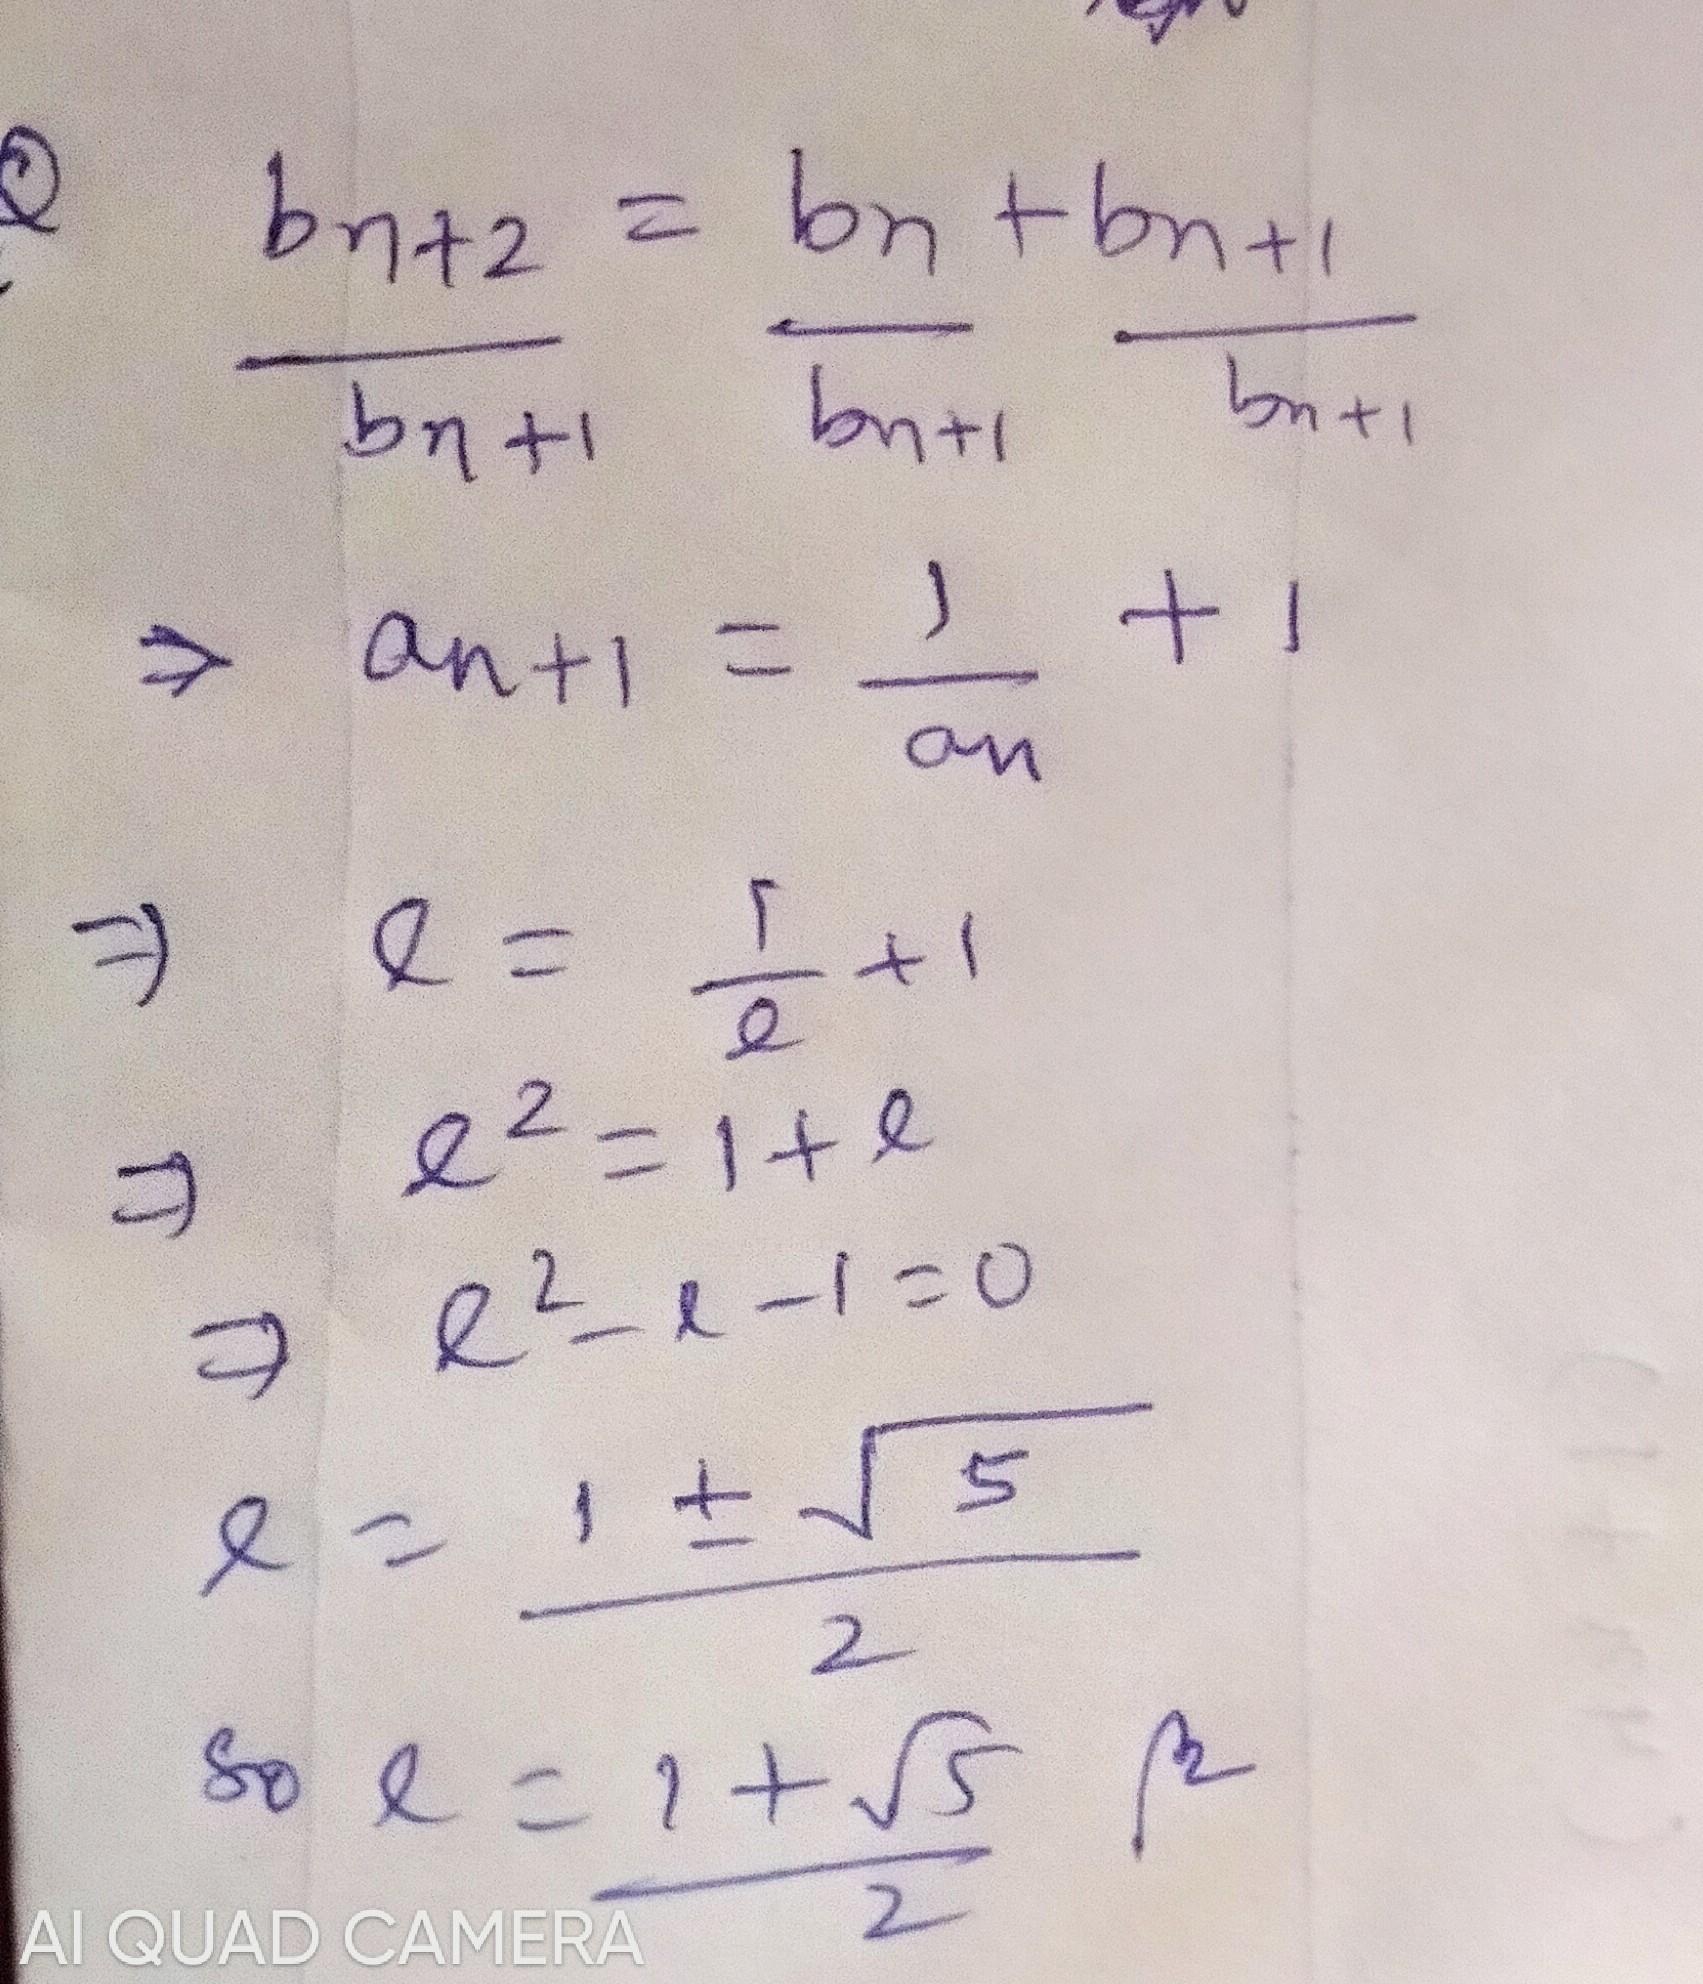 Q bn+2 / bn+1 = bn / bn+1 + bn+1 / bn+1
⇒ an+1 = 1 / an + 1
⇒ l = 1 / l + 1
⇒ l² = 1 + l
⇒ l² - l - 1 = 0
l = 1 ± √5 / 2
so l = 1 + √5 / 2
AI QUAD CAMERA